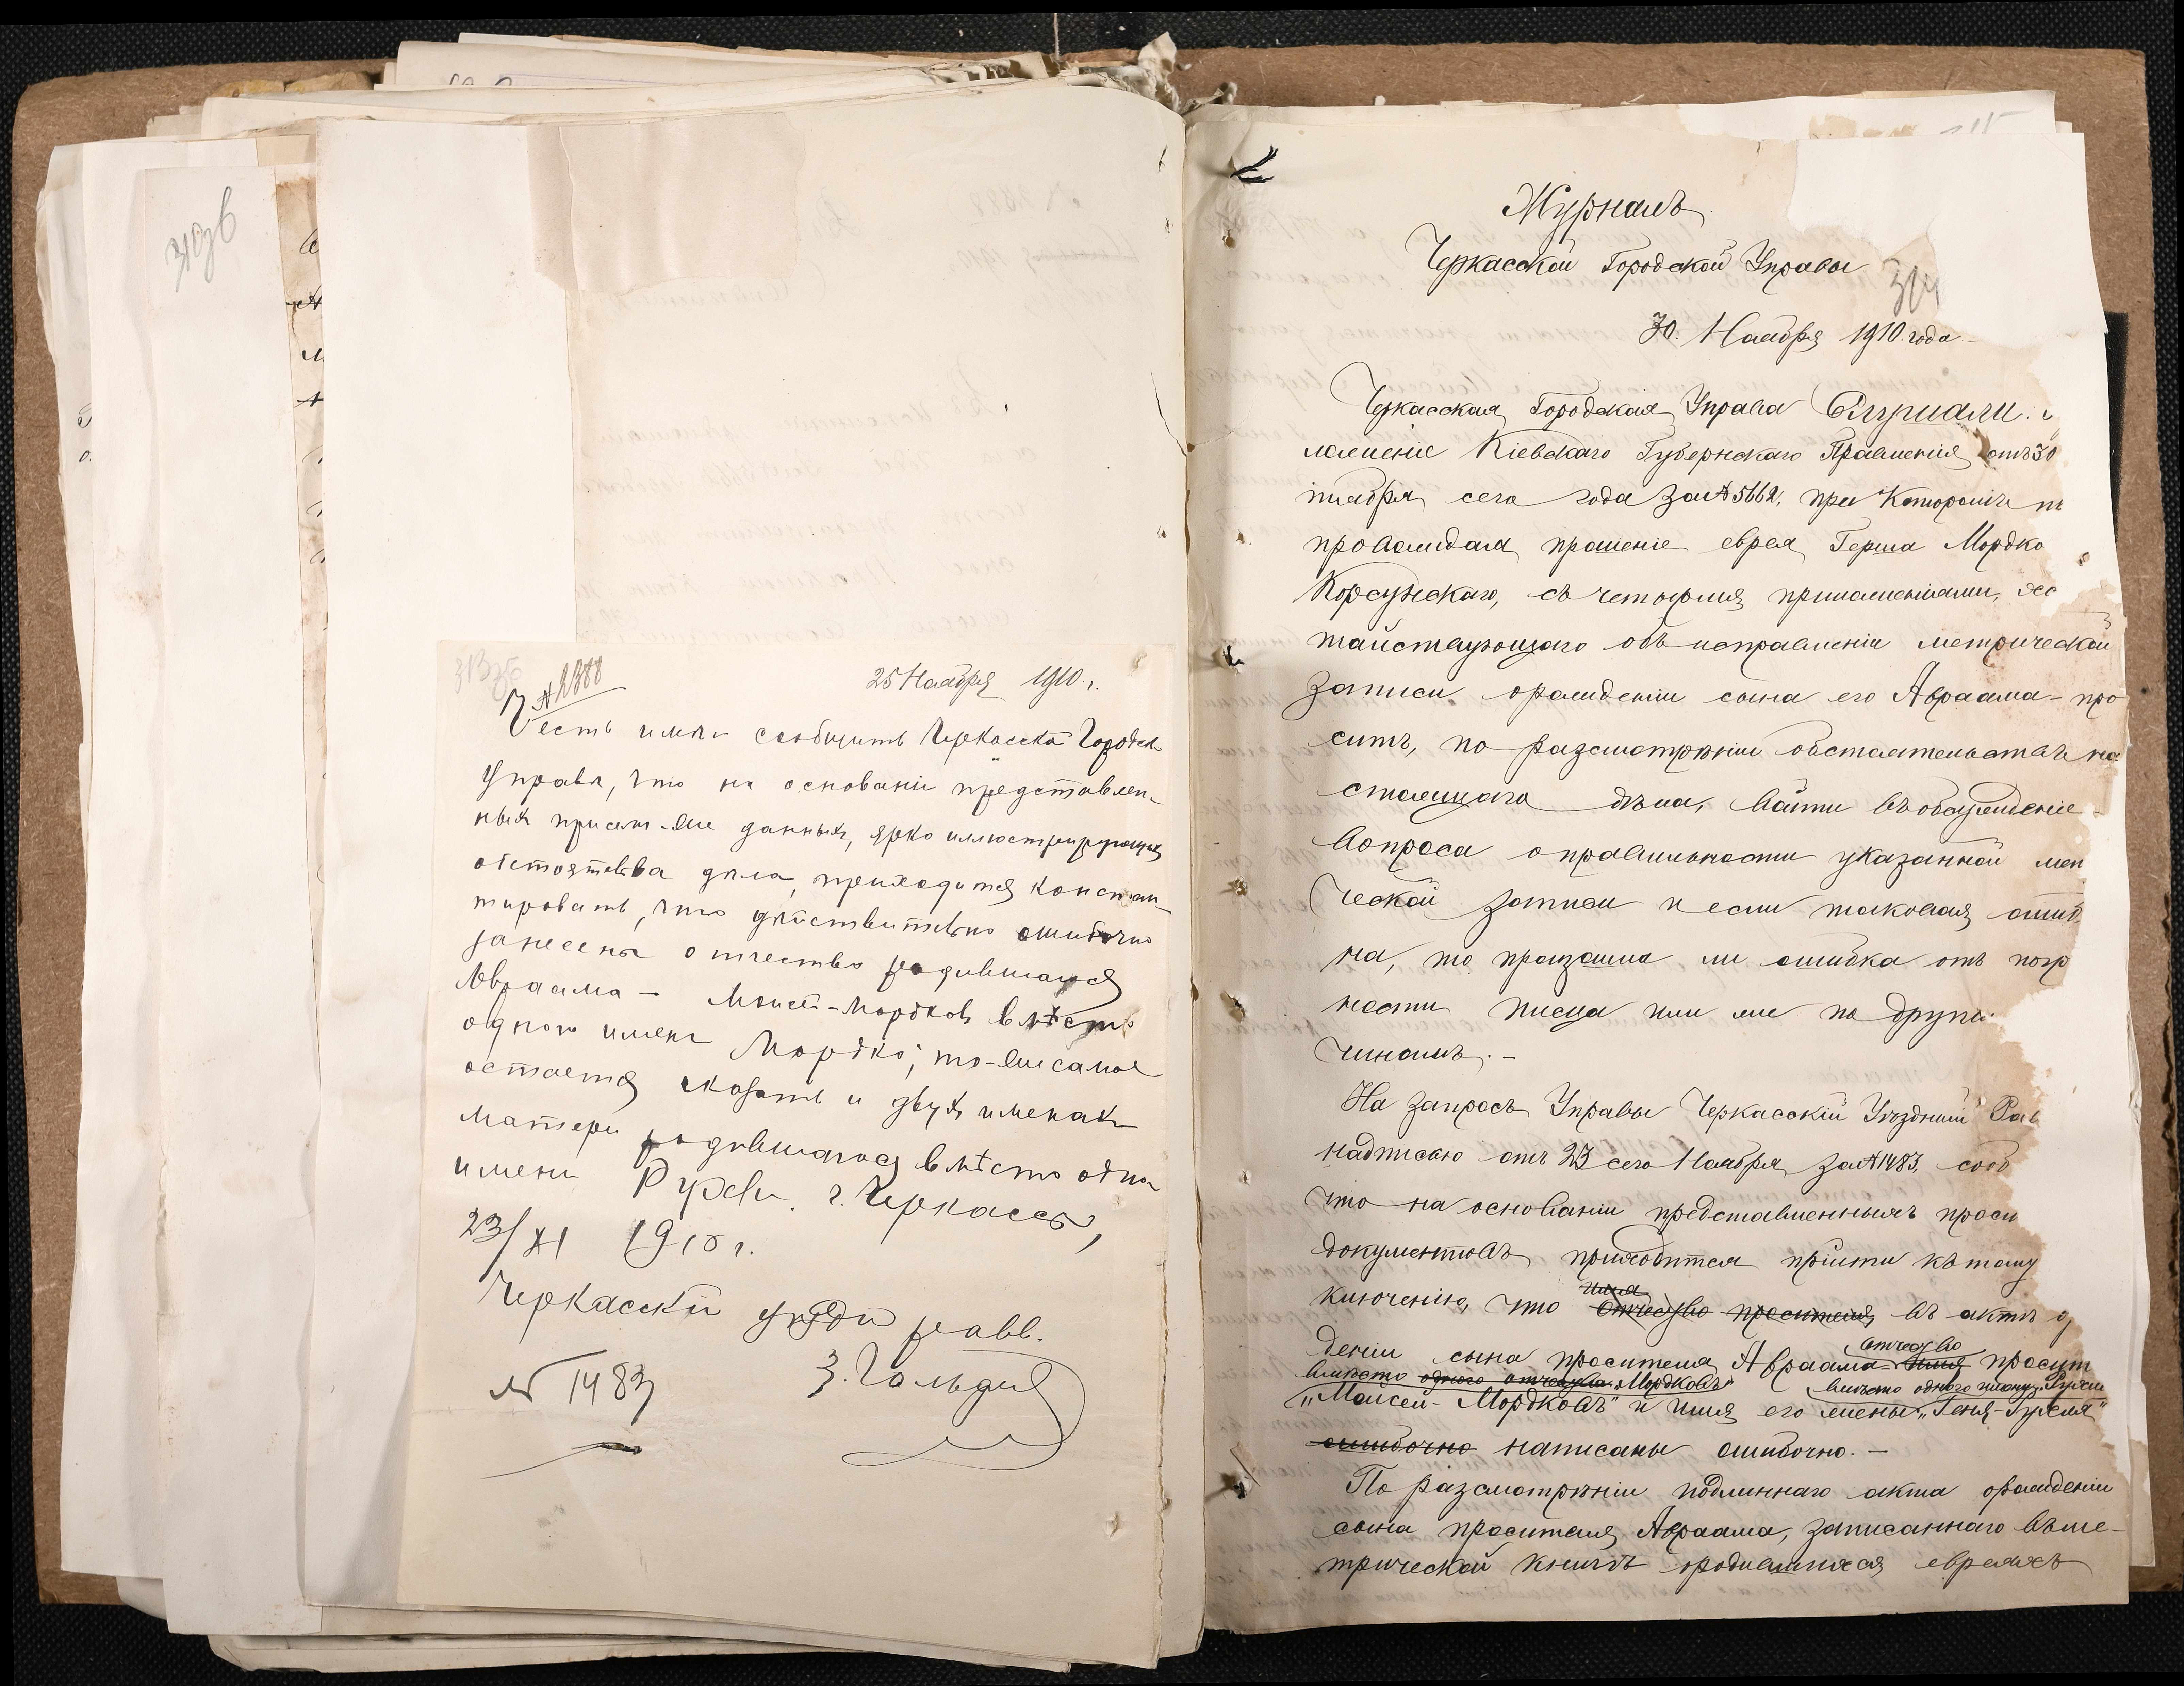 25 Ноября 1910 г.
№ 2388
Честь имѣю сообщить Черкасской Городск.
Управѣ, что на основаніи представлен-
ныхъ данныхъ, ярко иллюстрирующихъ
обстоятельства дѣла, приходится констан-
тировать, что дѣйствительно ошибочно
занесены отчество родившагося
Авраама – Моисей-Мордковъ вмѣсто
одного имени Мордко; то-же самое
остается сказать и двухъ именахъ
матери родившагося вмѣсто одного
имени Рухли. г. Черкассы,
23/XI 1910 г.
Черкасскій уѣздн равв.
№ 1483
Журналъ
Черкасской Городской Управы
314
30. Ноября 1910 года
Черкасская Городская Управа Слушали:
ложеніе Кіевскаго Губернскаго Правленія отъ 30
тября сего года за № 5662, при которомъ
провождая прошеніе еврея Герша Мордко
Корсунскаго, съ четырмя приложеніями, хо
тайствующаго объ исправленіи метрической
записи о рожденіи сына его Авраама – про
ситъ, по разсмотрѣніи обстоятельствъ на
стоящаго дѣла, войти въ обсужденіе
вопроса о правильности указанной мет
ческой записи и если таковая ошиб
на, то произошла ли ошибка отъ погр
ности писца или же по другимъ
чинамъ. –
На запросъ Управы Черкасскій Уѣздный Рав
надписью отъ 23 сего Ноября за № 1483, сооб
что на основаніи представленныхъ проси
документовъ приходится прійти къ тому
ключенію, что отчество просителя въ актѣ о
имя
деніи сына просителя Авраама – имя просит
отчество
вмѣсто одного отчества „Мордковъ" вмѣсто одного имени „Рухли
„Моисей-Мордковъ" и имя его жены
ошибочно написаны ошибочно. –
По разсмотрѣніи подлиннаго акта о рожденіи
сына просителя Авраама, записаннаго въ ме-
трической книгѣ о родившихся евреяхъ